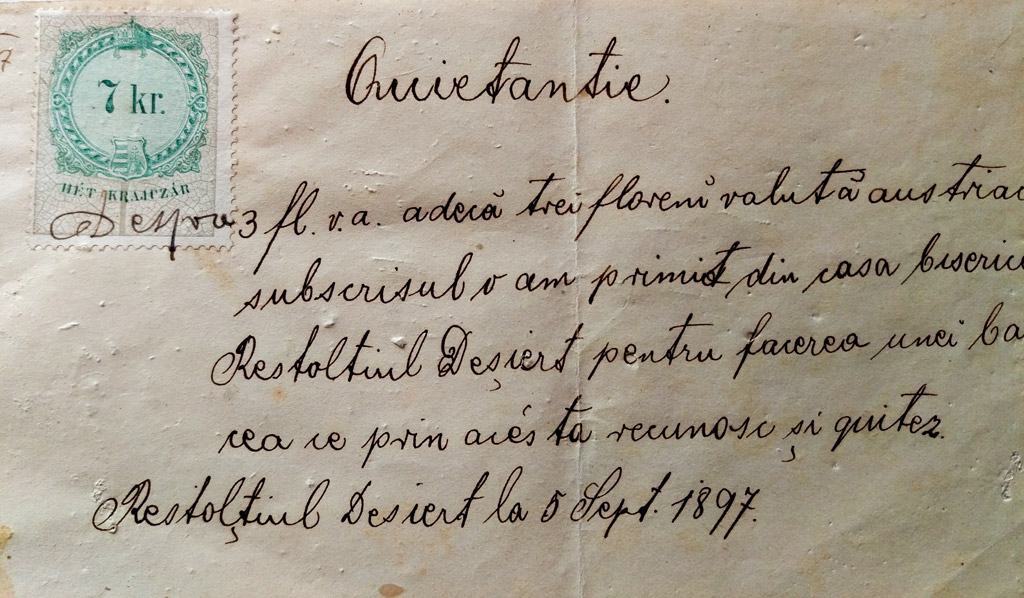 Quietantie.
7 kr.
HÉT KRAJCZÁR
Despre 3 fl. v. a. adecă trei florenĭ valută austriac
subscrisul o am primit din casa biserici
Restoltiul Deșiert pentru facerea unei ba
cea ce prin acésta recunosc și quitez.
Restolțiul Desiert la 5 Sept. 1897.